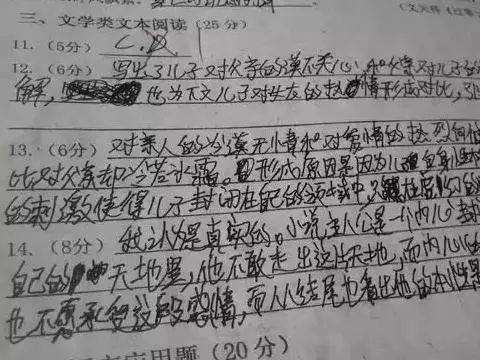 (文天祥《过零
三、文学类文本阅读(25分)
11.(5分) C.D
12.(6分) 写出了儿子对父亲的漠不关心,和父亲对儿子的
解, 也为下文儿子对失友的热情形成对比,
13.(6分) 对亲人的冷漠无情和对爱情的热烈
比对父亲却冷若冰霜, 形成原因是因为儿
的刺激使得儿子封闭在自己的领域中,
14.(8分) 我认为是真实的。小说主人公是一个内心封
自己的 天地里,他不敢走出这片天地,而内心
也不愿承受这段感情,而从结尾也看出他的本性
应用题(20分)